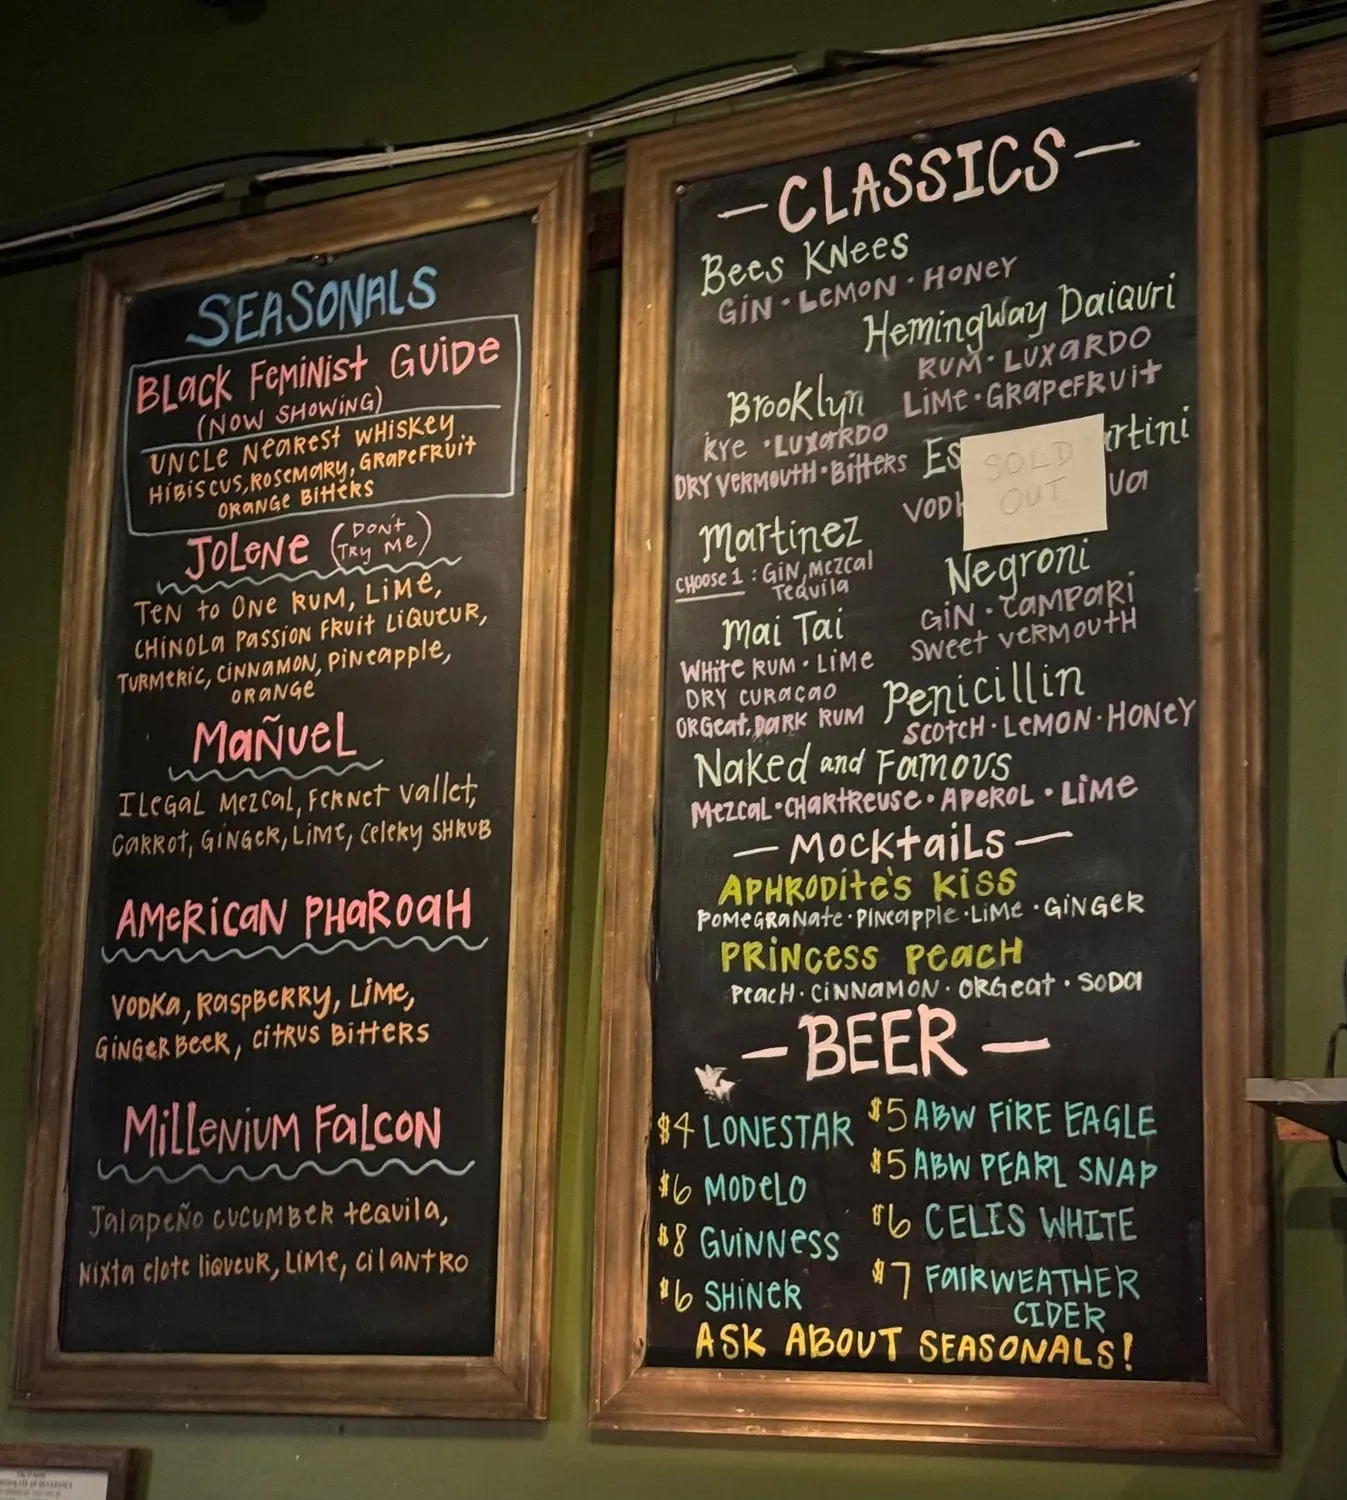 SEASONALS
BLACK FEMINIST GUIDE
(NOW SHOWING)
UNCLE NEAREST WHISKEY
HIBISCUS, ROSEMARY, GRAPEFRUIT
ORANGE BITTERS
JOLENE (DON'T
TRY ME)
TEN TO ONE RUM, LIME,
CHINOLA PASSION FRUIT LIQUEUR,
TURMERIC, CINNAMON, PINEAPPLE,
ORANGE
MAÑUEL
ILEGAL MEZCAL, FERNET VALLET,
CARROT, GINGER, LIME, CELERY SHRUB
AMERICAN PHAROAH
VODKA, RASPBERRY, LIME,
GINGER BEER, CITRUS BITTERS
MILLENIUM FALCON
JALAPEÑO CUCUMBER TEQUILA,
NIXTA ELOTE LIQUEUR, LIME, CILANTRO
— CLASSICS —
Bees KNees
GIN · LEMON · HONEY
Hemingway Daiquri
RUM · LUXARDO
LIME · GRAPEFRUIT
Brooklyn
RYE · LUXARDO
DRY VERMOUTH · BITTERS
Es rtini
SOLD
OUT
VOD
Martinez
CHOOSE 1 : GIN, MEZCAL
TEQUILA
Negroni
GIN · CAMPARI
SWEET VERMOUTH
Mai Tai
WHITE RUM · LIME
DRY CURACAO
ORGEAT, DARK RUM
Penicillin
SCOTCH · LEMON · HONEY
Naked and Famous
MEZCAL · CHARTREUSE · APEROL · LIME
— MOCKTAILS —
APHRODITE'S KISS
POMEGRANATE · PINEAPPLE · LIME · GINGER
PRINCESS PEACH
PEACH · CINNAMON · ORGEAT · SODA
— BEER —
$4 LONESTAR
$6 MODELO
$8 GUINNESS
$6 SHINER
$5 ABW FIRE EAGLE
$5 ABW PEARL SNAP
$6 CELIS WHITE
$7 FAIRWEATHER
CIDER
ASK ABOUT SEASONALS!